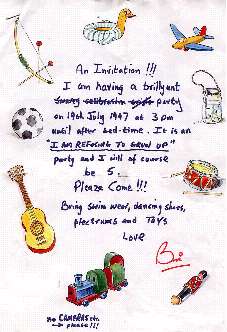 An Invitation !!!
I am having a brillyant
party
on 19th July 1947 at 3 pm
until after bed-time. It is an
"I AM REFUSING TO GROW UP"
party and I will of course
be 5.
Pleaze Come !!!
Bring Swim wear, dancing shoes,
plectrums and Toys
Love
Bri
no CAMERAS etc.
→ please !!!